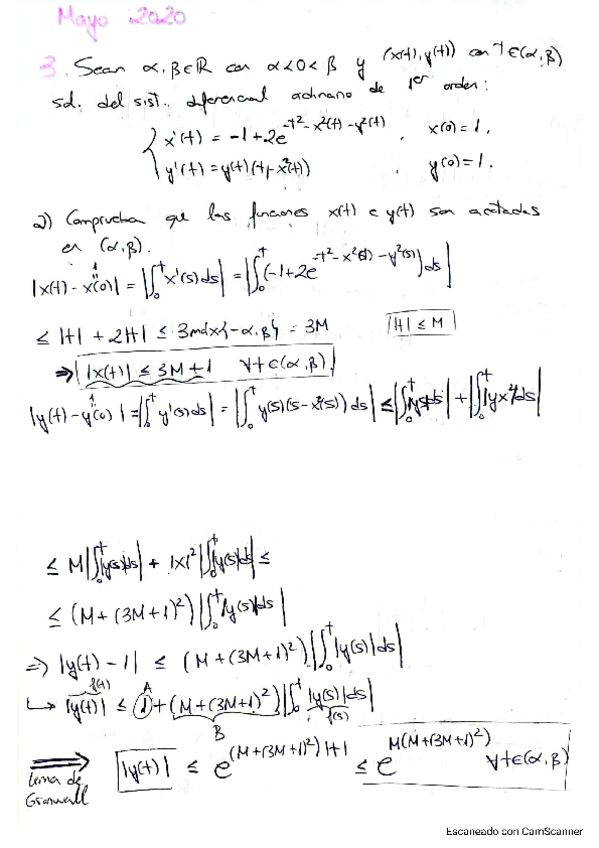 Mayo 2020
3. Sean α, β∈ℝ con α<0<β y (x(t), y(t)) con t∈(α,β)
sol. del sist. diferencial ordinario de 1er orden:
{ x'(t) = -1+2e^(-t²-x²(t)-y²(t)) , x(0)=1.
y'(t) = y(t)(t-x²(t)) , y(0)=1.
a) Comprueba que las funciones x(t) e y(t) son acotadas
en (α,β).
|x(t) - x(0)| = |∫₀ᵗ x'(s)ds| = |∫₀ᵗ (-1+2e^(-t²-x²(s)-y²(s)))ds|
≤ |t| + 2|t| ≤ 3máx{-α,β} = 3M |t| ≤ M
⇒ |x(t)| ≤ 3M+1 ∀t∈(α,β)
|y(t) - y(0)| = |∫₀ᵗ y'(s)ds| = |∫₀ᵗ y(s)(s-x²(s))ds| ≤ |∫₀ᵗ |ys|ds| + |∫₀ᵗ |yx²|ds|
≤ M|∫₀ᵗ |y(s)|ds| + |x|²|∫₀ᵗ |y(s)|ds| ≤
≤ (M+(3M+1)²)|∫₀ᵗ |y(s)|ds|
⇒ |y(t) - 1| ≤ (M+(3M+1)²)|∫₀ᵗ |y(s)|ds|
f(t) A
↳ |y(t)| ≤ 1 + (M+(3M+1)²)|∫₀ᵗ |y(s)|ds|
B f(s)
⇒ |y(t)| ≤ e^((M+(3M+1)²)|t|) ≤ e^(M(M+(3M+1)²)) ∀t∈(α,β)
Lema de
Gronwall
Escaneado con CamScanner